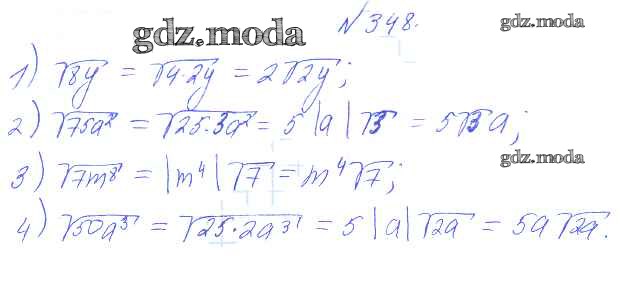 №348.
gdz.moda
gdz.moda
1) √8y = √4·2y = 2√2y;
2) √75a² = √25·3a² = 5|a|√3 = 5√3a;
gdz.moda
3) √7m⁸ = |m⁴|√7 = m⁴√7;
4) √50a³ = √25·2a³ = 5|a|√2a = 5a√2a.